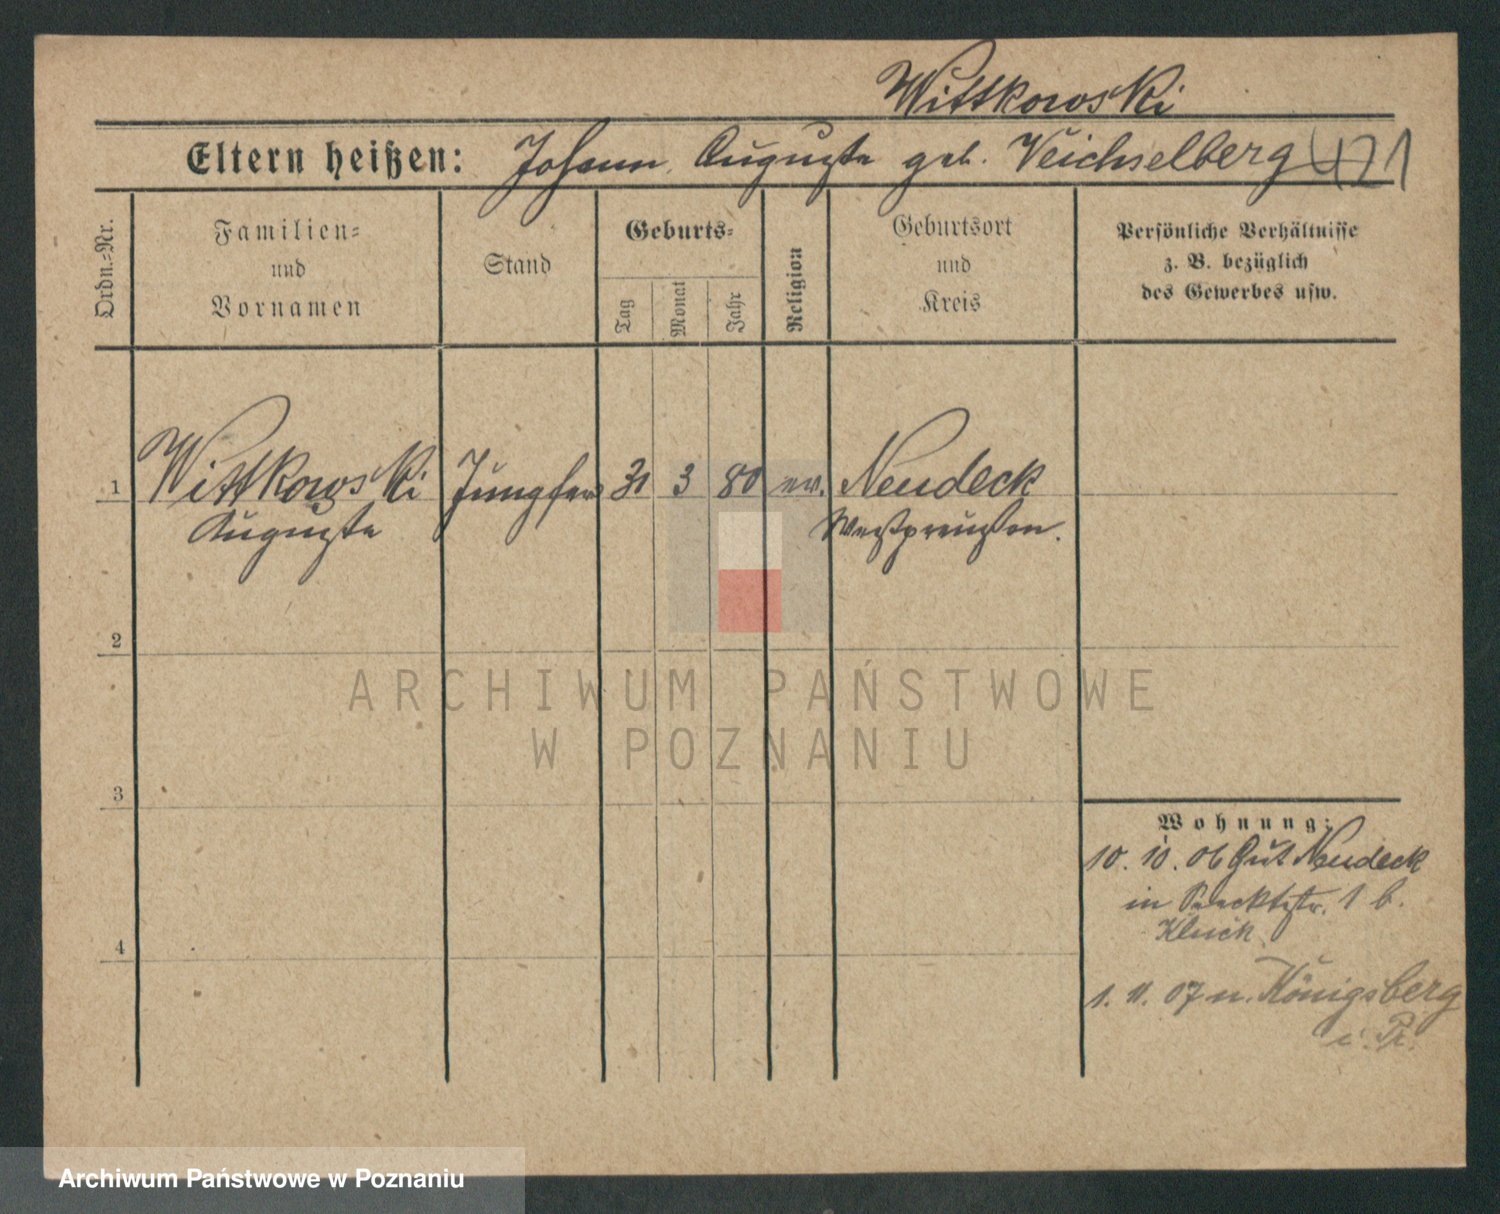 Wittkowski
Eltern heißen: Johann, Auguste geb. Weichselberg 421
Ordn.-Nr.
Familien-
und
Vornamen
Stand
Geburts-
Tag
Monat
Jahr
Religion
Geburtsort
und
Kreis
Persönliche Verhältnisse
z. B. bezüglich
des Gewerbes usw.
1 Wittkowski Jungfer 31 3 80 ev. Neudeck
Auguste Westpreußen.
2
ARCHIWUM PAŃSTWOWE
W POZNANIU
3
Wohnung:
10. 10. 06 Gut Neudeck
in 1 b.
Kluck
4
1. 11. 07 n. Königsberg
i. Pr.
Archiwum Państwowe w Poznaniu